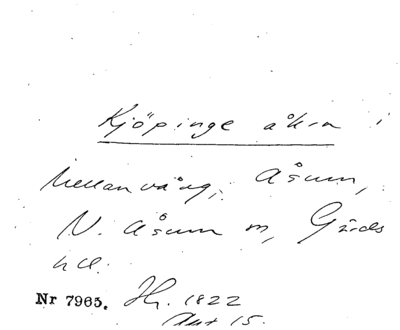 Kjöpinge åkrn i
Mellanvång, Åsum,
N. Åsum sn, Gärds
hd.
Nr 7965. Hr. 1822
Akt 15.